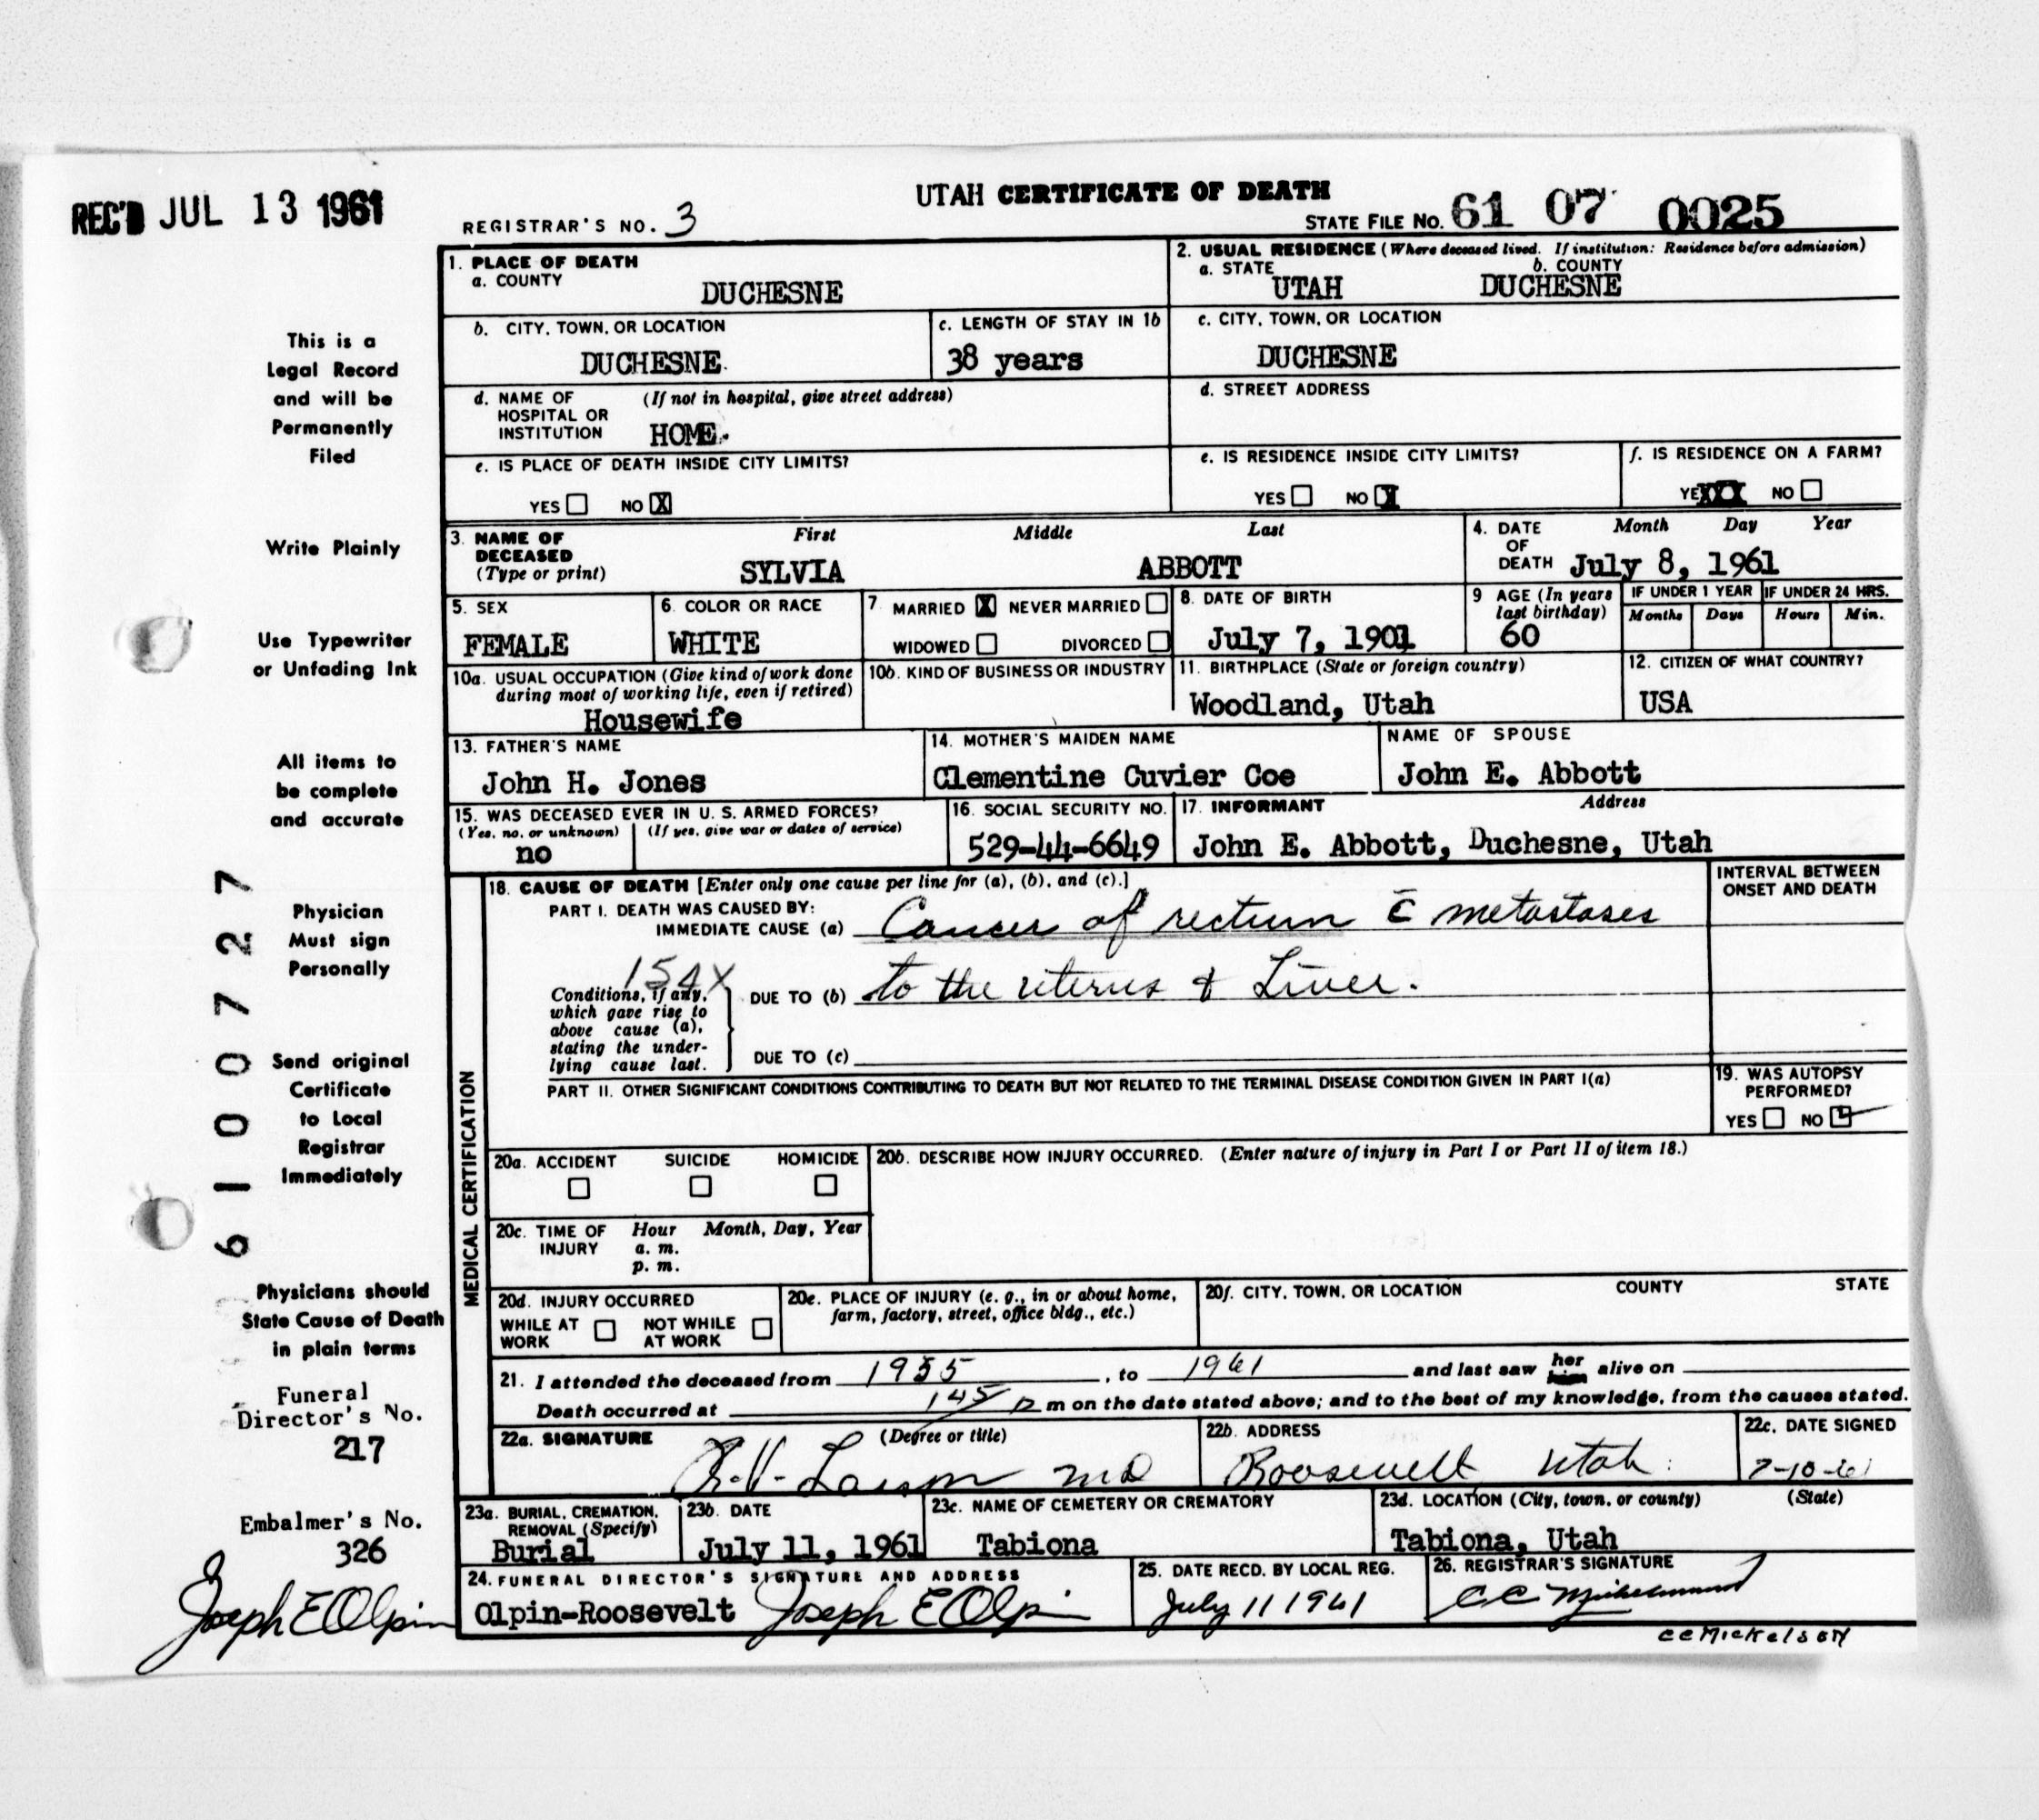 REC'D JUL 13 1961
UTAH CERTIFICATE OF DEATH
REGISTRAR'S NO. 3
STATE FILE NO. 61 07 0025
This is a
Legal Record
and will be
Permanently
Filed
Write Plainly
Use Typewriter
or Unfading Ink
All items to
be complete
and accurate
Physician
Must sign
Personally
Send original
Certificate
to Local
Registrar
Immediately
6100727
Physicians should
State Cause of Death
in plain terms
Funeral
Director's No.
217
Embalmer's No.
326
Joseph E Olpin
1. PLACE OF DEATH
a. COUNTY
DUCHESNE
2. USUAL RESIDENCE (Where deceased lived. If institution: Residence before admission)
a. STATE b. COUNTY
UTAH DUCHESNE
b. CITY, TOWN, OR LOCATION
DUCHESNE
c. LENGTH OF STAY IN 1b
38 years
c. CITY, TOWN, OR LOCATION
DUCHESNE
d. NAME OF (If not in hospital, give street address)
HOSPITAL OR
INSTITUTION HOME.
d. STREET ADDRESS
e. IS PLACE OF DEATH INSIDE CITY LIMITS?
YES NO X
e. IS RESIDENCE INSIDE CITY LIMITS?
YES NO X
f. IS RESIDENCE ON A FARM?
YEXXX NO
3. NAME OF First Middle Last
DECEASED
(Type or print) SYLVIA ABBOTT
4. DATE Month Day Year
OF
DEATH July 8, 1961
5. SEX
FEMALE
6. COLOR OR RACE
WHITE
7 MARRIED X NEVER MARRIED
WIDOWED DIVORCED
8. DATE OF BIRTH
July 7, 1901
9 AGE (In years
last birthday)
60
IF UNDER 1 YEAR IF UNDER 24 HRS.
Months Days Hours Min.
10a. USUAL OCCUPATION (Give kind of work done
during most of working life, even if retired)
Housewife
10b. KIND OF BUSINESS OR INDUSTRY
11. BIRTHPLACE (State or foreign country)
Woodland, Utah
12. CITIZEN OF WHAT COUNTRY?
USA
13. FATHER'S NAME
John H. Jones
14. MOTHER'S MAIDEN NAME
Clementine Cuvier Coe
NAME OF SPOUSE
John E. Abbott
15. WAS DECEASED EVER IN U. S. ARMED FORCES?
(Yes, no, or unknown) (If yes, give war or dates of service)
no
16. SOCIAL SECURITY NO.
529-44-6649
17. INFORMANT Address
John E. Abbott, Duchesne, Utah
MEDICAL CERTIFICATION
18. CAUSE OF DEATH [Enter only one cause per line for (a), (b), and (c).]
INTERVAL BETWEEN
ONSET AND DEATH
PART I. DEATH WAS CAUSED BY:
IMMEDIATE CAUSE (a) Cancer of rectum c̄ metastases
154X
Conditions, if any,
which gave rise to
above cause (a),
stating the under-
lying cause last.
DUE TO (b) to the uterus & Liver.
DUE TO (c)
PART II. OTHER SIGNIFICANT CONDITIONS CONTRIBUTING TO DEATH BUT NOT RELATED TO THE TERMINAL DISEASE CONDITION GIVEN IN PART I(a)
19. WAS AUTOPSY
PERFORMED?
YES NO ✓
20a. ACCIDENT SUICIDE HOMICIDE
20b. DESCRIBE HOW INJURY OCCURRED. (Enter nature of injury in Part I or Part II of item 18.)
20c. TIME OF Hour Month, Day, Year
INJURY a. m.
p. m.
20d. INJURY OCCURRED
WHILE AT NOT WHILE
WORK AT WORK
20e. PLACE OF INJURY (e. g., in or about home,
farm, factory, street, office bldg., etc.)
20f. CITY, TOWN, OR LOCATION COUNTY STATE
21. I attended the deceased from 1955, to 1961 and last saw her him alive on
Death occurred at 145 p m on the date stated above; and to the best of my knowledge, from the causes stated.
22a. SIGNATURE (Degree or title)
R.V. Larson MD
22b. ADDRESS
Roosevelt Utah
22c. DATE SIGNED
7-10-61
23a. BURIAL, CREMATION,
REMOVAL (Specify)
Burial
23b. DATE
July 11, 1961
23c. NAME OF CEMETERY OR CREMATORY
Tabiona
23d. LOCATION (City, town, or county) (State)
Tabiona, Utah
24. FUNERAL DIRECTOR'S SIGNATURE AND ADDRESS
Olpin-Roosevelt Joseph E Olpin
25. DATE RECD. BY LOCAL REG.
July 11 1961
26. REGISTRAR'S SIGNATURE
CC Mickelson
CC Mickelson